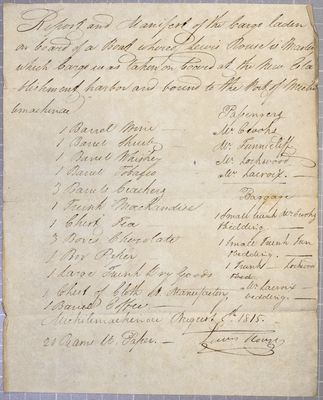 Report and Manifest of the Cargo laden
on board of a Boat whereof Lewis Rouse is Master
which Cargo was taken on board at the New Eta
blishment harbor and bound to the Port of Michili
mackinac
Passengers
1 Barrel Wine
1 Barrel Shrub
1 Barrel Whiskey
1 Barrel Tobacco
3 Barrels Crackers
1 Trunk Merchandise
1 Chest Tea
3 Boxes Chocolate
1 Box Paper
1 Large Trunk Dry Goods
1 Chest of Cloth
1 Barrel Coffee
Mr Crooks
Mr Tunnicliff
Mr Lockwood
Mr Lacroix
Baggage
1 Small trunk Mr Crooks
& bedding
1 Small Trunk Tun
bedding
1 Trunk Lockwood
Bed
Mr Lacroix
bedding
Michilimackinac August 1815
20 Reams W. Paper
Lewis Rouse